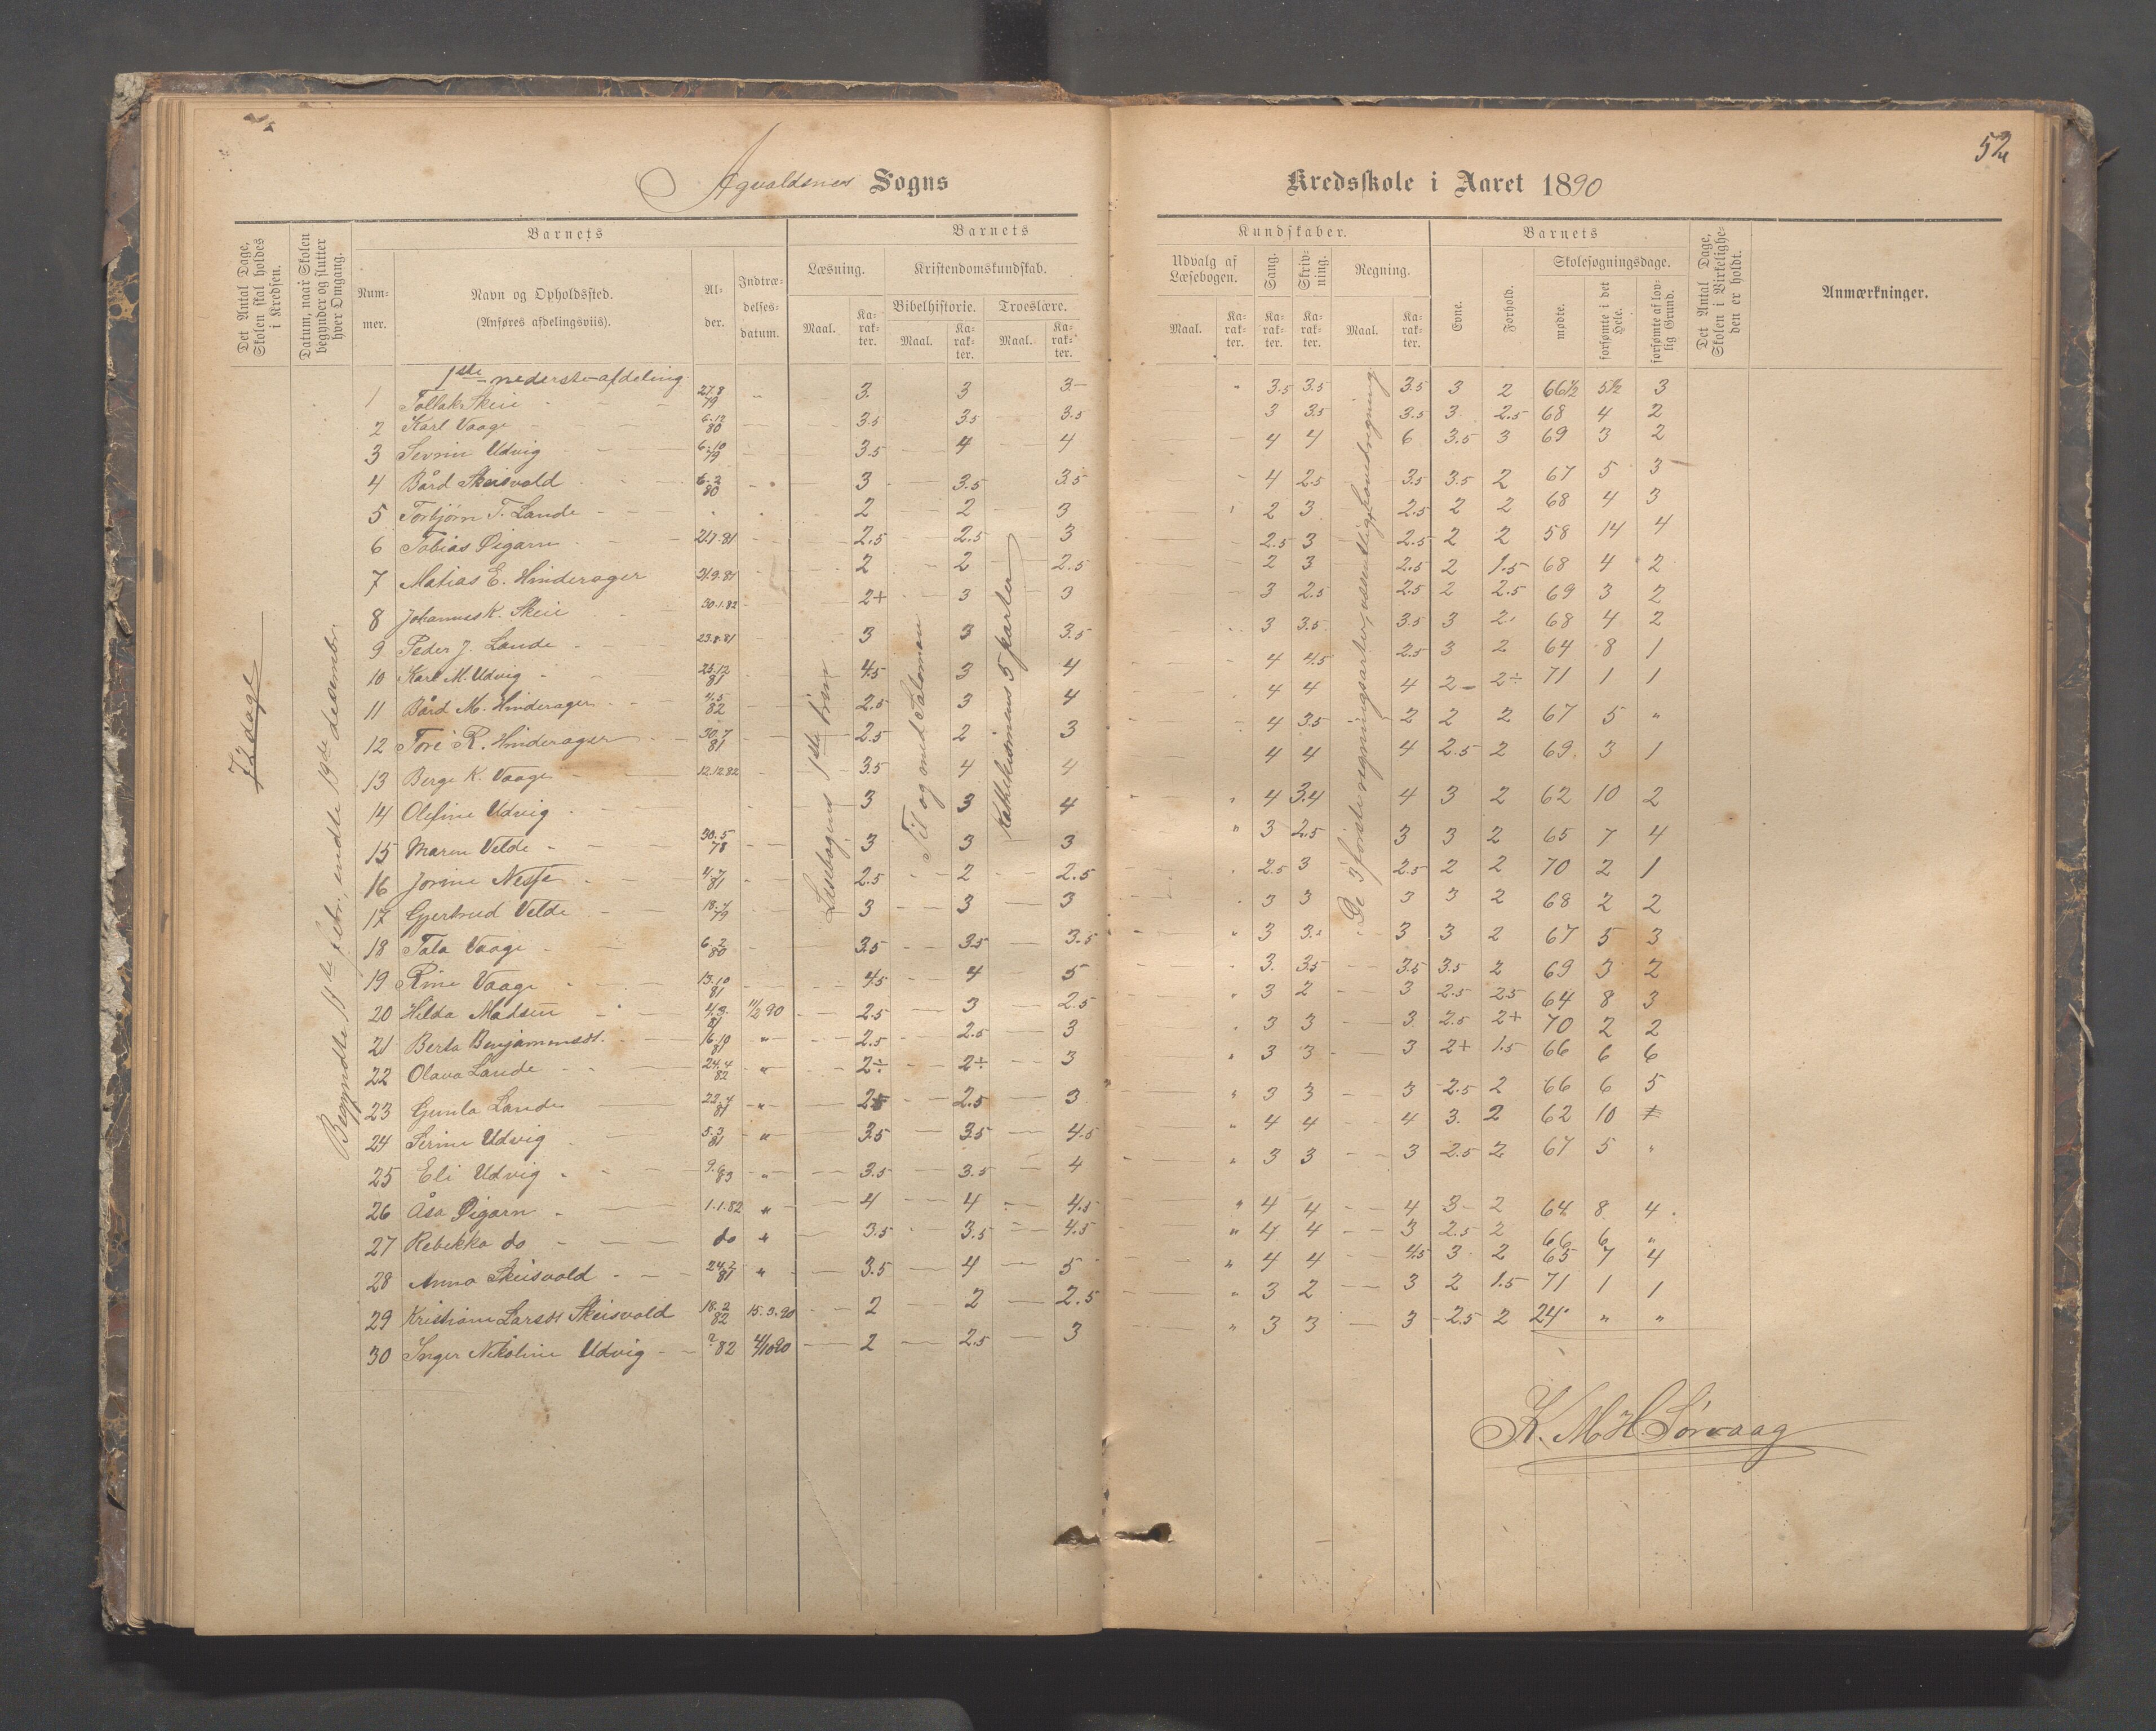 52
Agvaldsnes Sogns Kredsskole i Aaret 1890
Det Antal Dage, Skolen skal holdes i Kredsen.
Datum, naar Skolen begynder og slutter hver Omgang.
Barnets
Nummer.
Navn og Opholdssted.
(Anføres afdelingsviis).
Alder.
Indtrædelsesdatum.
Barnets Kundskaber.
Læsning.
Maal.
Karakter.
Kristendomskundskab.
Bibelhistorie.
Maal.
Karakter.
Troeslære.
Maal.
Karakter.
Udvalg af Læsebogen.
Maal.
Karakter.
Sang.
Karakter.
Skrivning.
Karakter.
Regning.
Maal.
Karakter.
Barnets
Evne.
Forhold.
Skolesøgningsdage.
mødte.
forsømte i det Hele.
forsømte af lovlig Grund.
Det Antal Dage, Skolen i Virkeligheden er holdt.
Anmærkninger.
72 dage
Begyndte 11te febr., endte 19de desember
Læsebogens 1ste trin
Til og med Salomon
Katekismens 5 parter
De 3 første regningsarter, væsentligst hovedregning
1ste nederste afdeling
1 Tollak Skeie 27.8 79 " 3. 3 3 " 3.5 3.5 3.5 3 2 66½ 5½ 3
2 Karl Vaage 6.12 80 3.5 3.5 3.5 3 3.5 3.5 3. 2.5 68 4 2
3 Sevrin Udvig 6.10 79 3.5 4 4 4 4 6 3.5 3 69 3 2
4 Bård Skeisvold 6.2 80 3 3.5 3.5 4 2.5 3.5 3.5 2 67 5 3
5 Torbjørn T. Lande 2 2 3 2 3 2.5 2 2 68 4 3
6 Tobias Øigarn 21.7.81 2.5 2.5 3 2.5 3 2.5 2 2 58 14 4
7 Matias E. Hinderager 21.9.81 2 2 2.5 2 3 2.5 2 1.5 68 4 2
8 Johannes K. Skeie 30.1.82 2+ 3 3 3 2.5 2.5 2 2.5 69 3 2
9 Peder J. Lande 23.8.81 3 3 3.5 3 3.5 3.5 3 2 68 4 2
10 Karl M. Udvig 25.12 81 4.5 3 4 4 4.5 2.5 3 2 64 8 1
11 Bård M. Hinderager 4.5 82 2.5 3 4 4 4 4 2 2÷ 71 1 1
12 Tore R. Hinderager 30.7 81 2.5 2 3 4 3.5 2 2 2 67 5 "
13 Berge K. Vaage 12.12.82 3.5 4 4 4 4 4 2.5 2 69 3 1
14 Olefine Udvig 3 3 4 " 4 3.4 4 3 2 62 10 2
15 Maren Velde 30.5 78 3 3 3 " 3 2.5 3 3 2 65 7 4
16 Jorine Nesse 4.7 81 2.5 2 2.5 2.5 3 2.5 2 2 70 2 1
17 Gjertrud Velde 18.7 79 3 3 3 3 3 3 3 2 68 2 2
18 Tala Vaage 6.2 80 3.5 3.5 3.5 " 3 3. 3 3 2 67 5 3
19 Rine Vaage 13.10 81 4.5 4 5 3. 3.5 3.5 3.5 2 69 3 2
20 Hilda Madsen 4.3. 81 11/2 90 2.5 3 2.5 " 3 2 3 2.5 2.5 64 8 3
21 Berta Benjaminsdt. 16.10 81 " 2.5 2.5 3 3 3 3 2.5 2+ 70 2 2
22 Olava Lande 24.4 82 " 2÷ 2÷ 3 " 3 3 3 2+ 1.5 66 6 6
23 Gunla Lande 22.4 81 " 2.5 2.5 3 " 3 3 3 2.5 2 66 6 5
24 Serine Udvig 5.3 81 " 3.5 3.5 4.5 " 4 4 4 3. 2 62 10
25 Eli Udvig 9. 83 " 3.5 3.5 4 " 3 3 3 2.5 2 67 5 "
26 Åsa Øigarn 1.1.82 " 4 4 4.5 " 4 4 4 3 2 64 8 4
27 Rebekka do do " 3.5 3.5 4.5 " 4 4 3 2.5 2 66 6 "
28 Anna Skeisvold 24.2 81 " 3.5 4 5 " 4 4 4.5 3 2 65 7 4
29 Kristiane Larsdt Skeisvold 18.2 82 15.3.90 2 2 2.5 " 3 2 3 2 1.5 71 1 1
30 Inger Nikoline Udvig ? 82 4/10 90 2 2.5 3 " 3 3 3 2.5 2 24 " "
K. M. H. Sørvaag